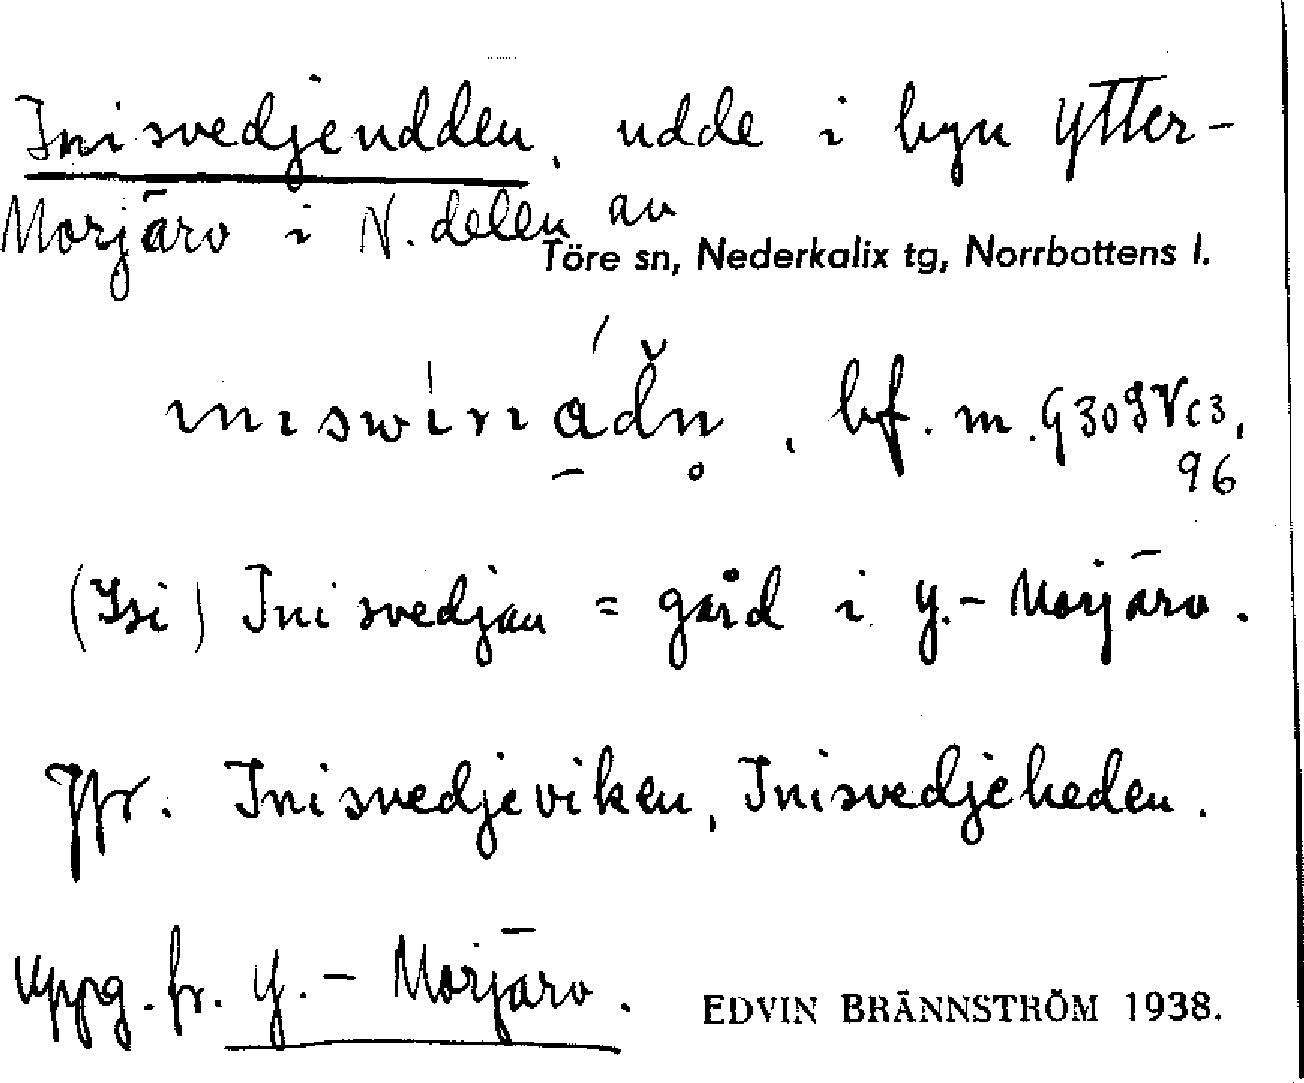 Inisvedjeudden, udde i byn Ytter-
Morjärv i N. delen av
Töre sn, Nederkalix tg, Norrbottens l.
bf. m.
96
(Isi) Inisvedjan = gård i Y.- Morjärv.
Jfr. Inisvedjeviken, Inisvedjeheden.
Uppg. fr. Y. - Morjärv.
EDVIN BRÄNNSTRÖM 1938.